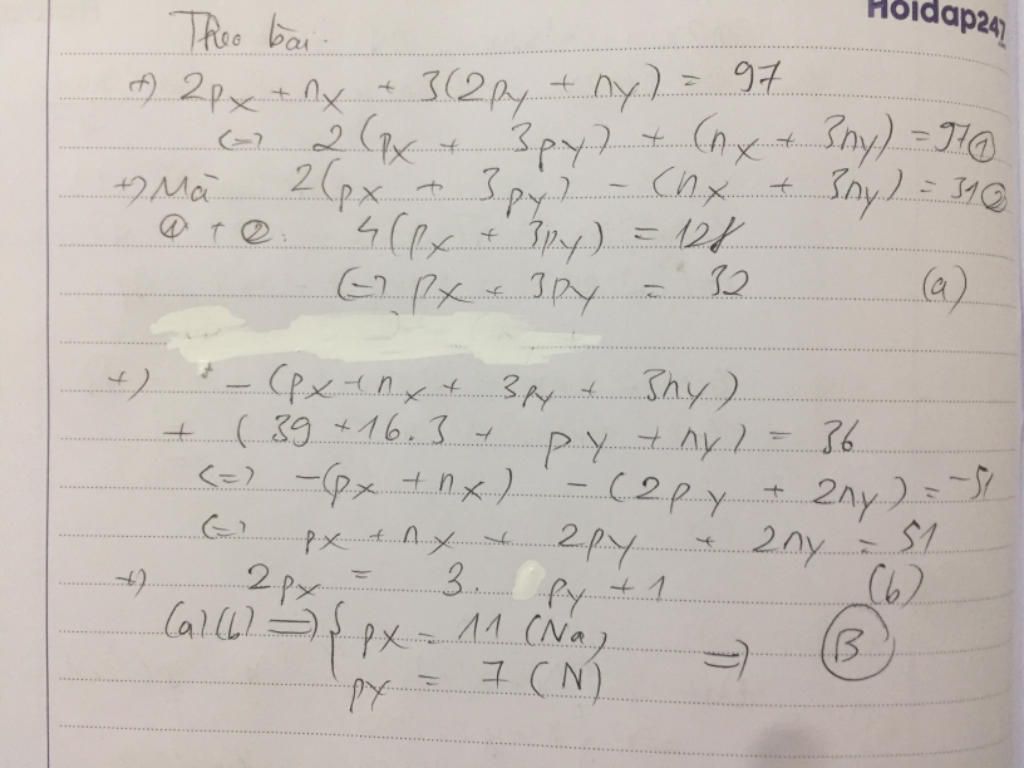 Hoidap247
Theo bài.
+) 2px + nx + 3(2py + ny) = 97
<=> 2(px + 3py) + (nx + 3ny) = 97 ①
+) Mà 2(px + 3py) - (nx + 3ny) = 31 ②
① + ②: 4(px + 3py) = 128
<=> px + 3py = 32 (a)
+) - (px + nx + 3py + 3ny)
+ (39 + 16.3 + py + ny) = 36
<=> -(px + nx) - (2py + 2ny) = -51
<=> px + nx + 2py + 2ny = 51
+) 2px = 3. py + 1 (b)
(a)(b) => { px = 11 (Na)
py = 7 (N) => B